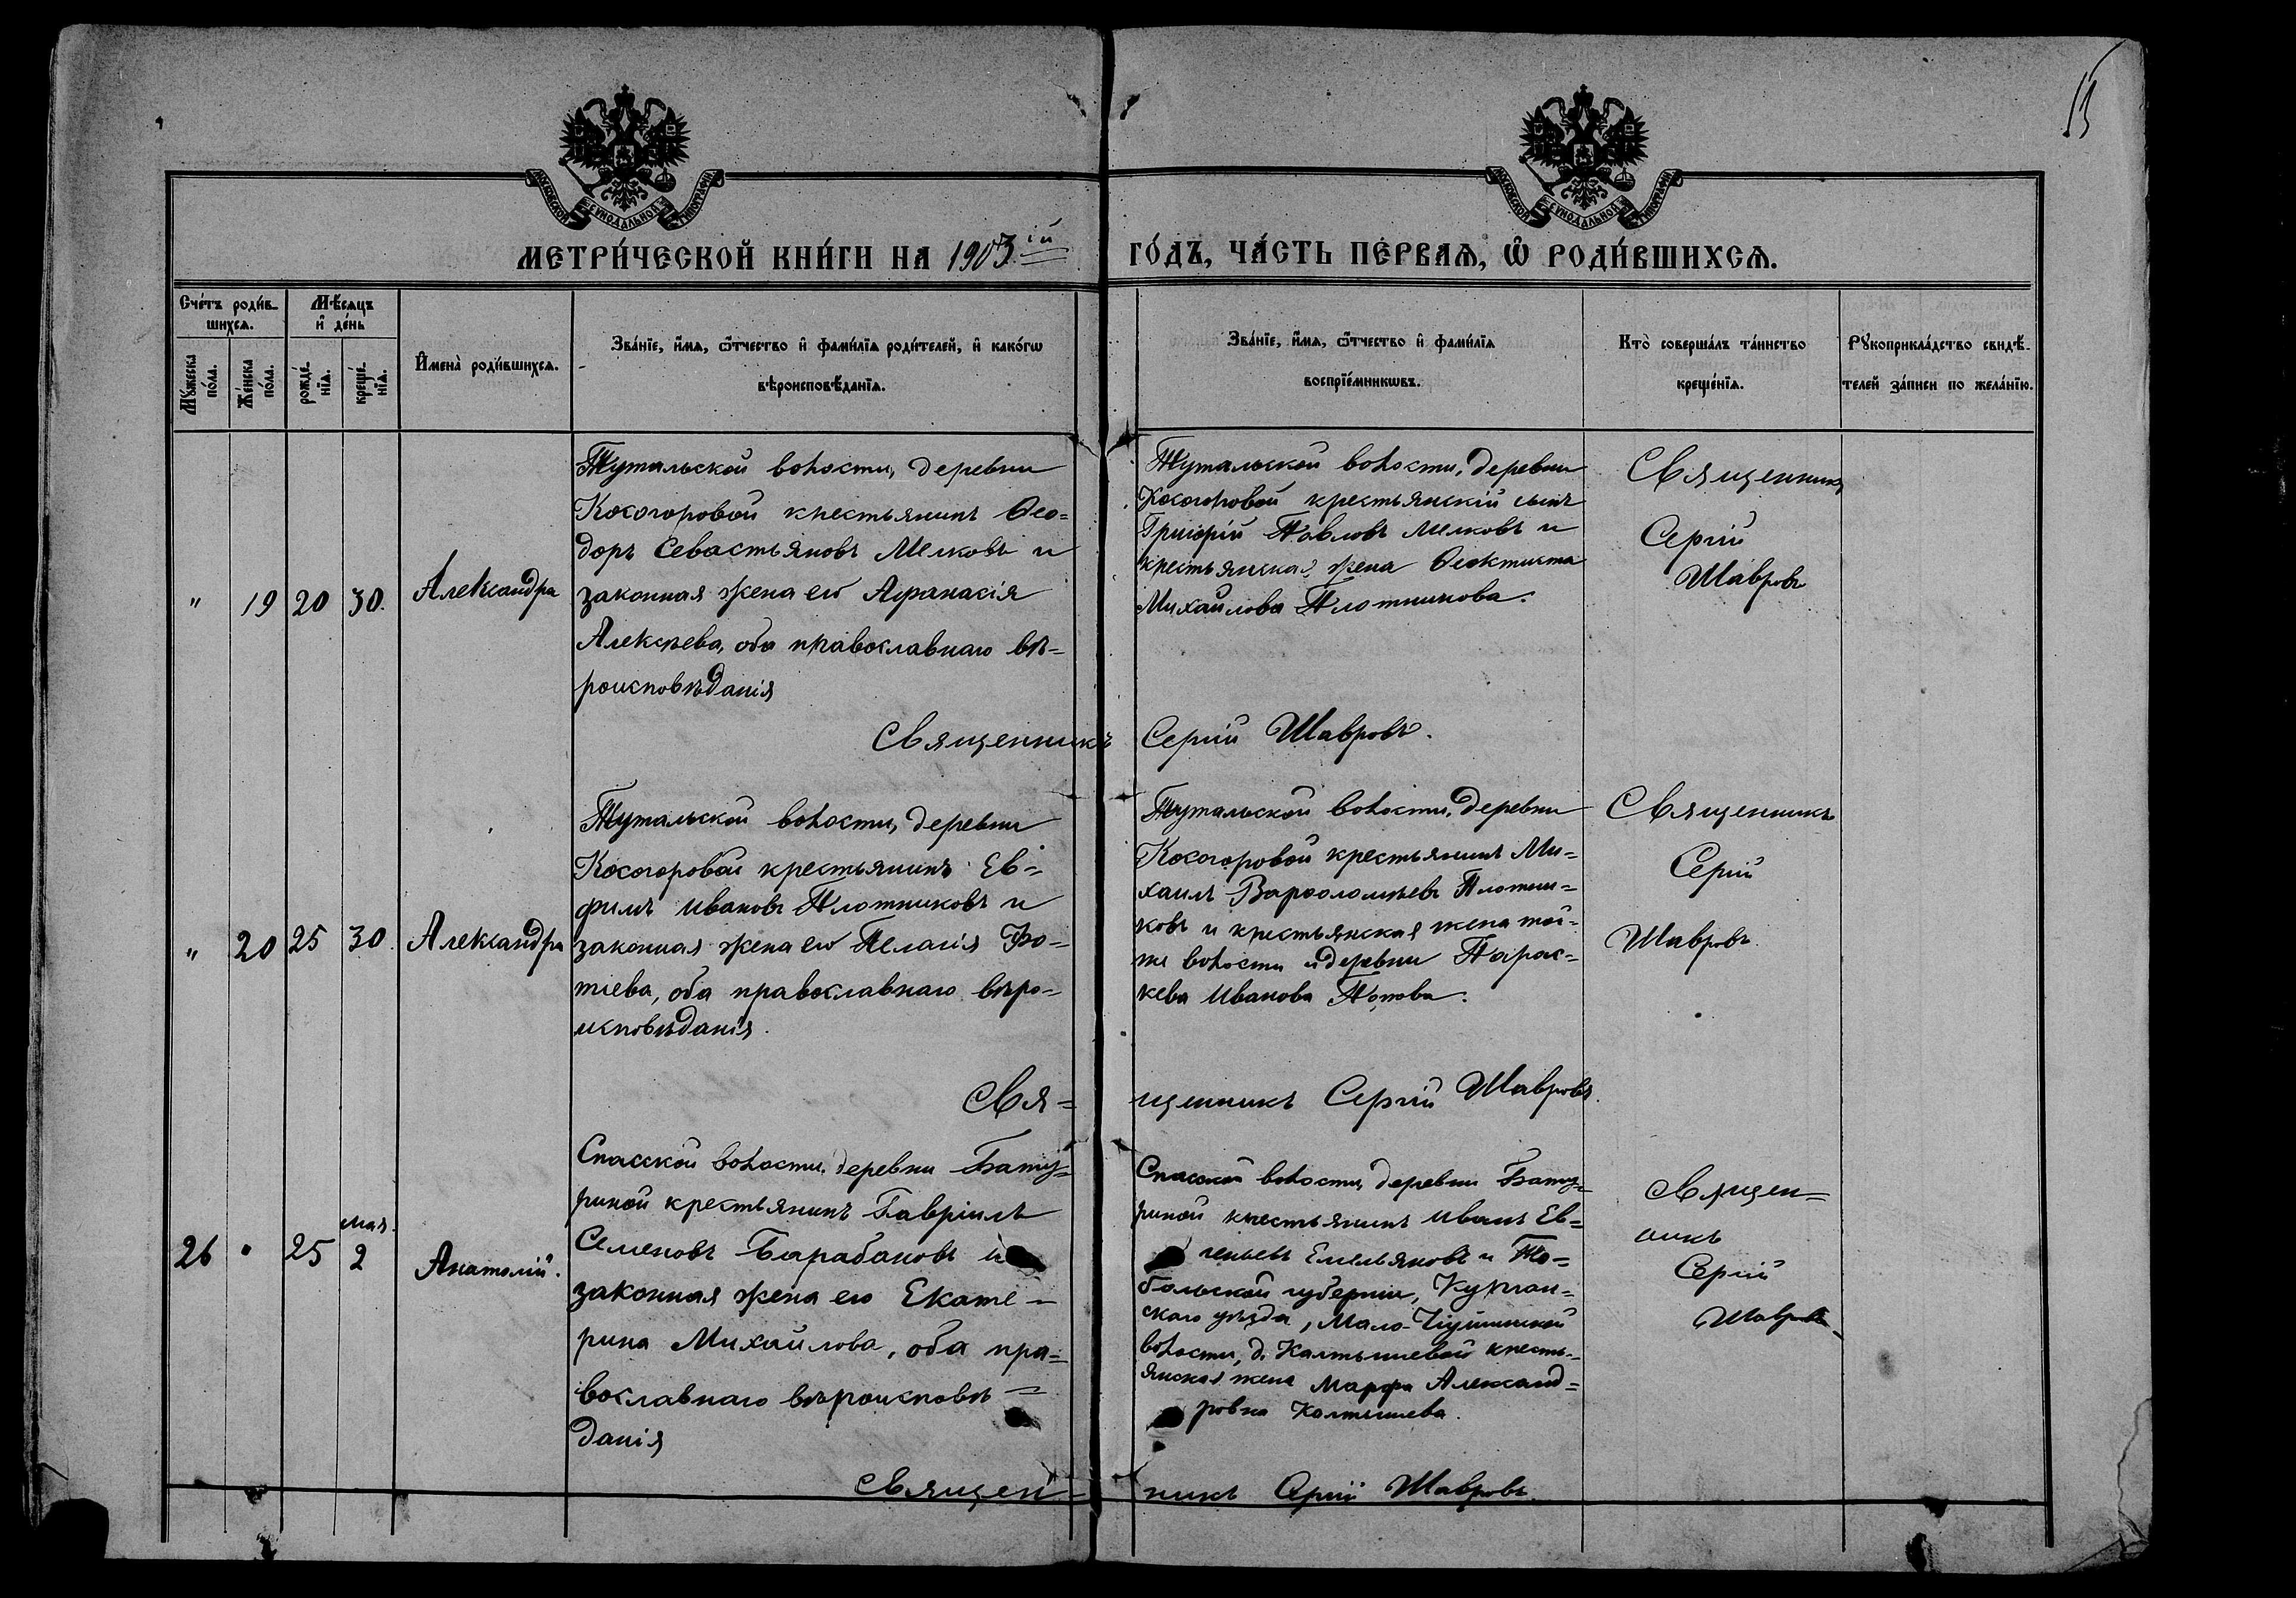 13
МОСКОВСКОЙ СѴНОДАЛЬНОЙ ТИПОГРАФІИ
МОСКОВСКОЙ СѴНОДАЛЬНОЙ ТИПОГРАФІИ
МЕТРИ́ЧЕСКОЙ КНИ́ГИ НА 1903ій ГО́ДЪ, ЧА́СТЬ ПЕ́РВАѦ, Ѽ РОДИ́ВШИХСѦ.
Сче́тъ роди́в-
шихсѧ.
Мꙋ́жеска
по́ла.
Же́нска
по́ла.
Мѣ́сѧцъ
и҆ де́нь
рожде́-
нїѧ.
креще́-
нїѧ.
И҆мена̀ роди́вшихсѧ.
Зва́нїе, и҆́мѧ, ѻ҆́тчество и҆ фами́лїѧ роди́телей, и҆ како́гѡ
вѣроисповѣ́данїѧ.
Зва́нїе, и҆́мѧ, ѻ҆́тчество и҆ фами́лїѧ
воспрїе́мникѡвъ.
Кто̀ соверша́лъ та́инство
креще́нїѧ.
Рꙋкоприкла́дство свидѣ́-
телей за́писи по жела́нїю.
" 19 20 30. Александра
Тутальской волости, деревни
Косогоровой крестьянинъ Ѳео=
доръ Севастьяновъ Мелковъ и
законная жена его Афанасія
Алексѣева, оба православнаго вѣ=
роисповѣданія
Тутальской волости, деревни
Косогоровой крестьянскій сынъ
Григорій Павловъ Мелковъ и
крестьянская жена Ѳеоктиста
Михайлова Плотникова.
Священникъ
Сергій
Шавровъ
Священникъ Сергій Шавровъ.
" 20 25 30. Александра
Тутальской волости, деревни
Косогоровой крестьянинъ Ев=
фимъ Ивановъ Плотниковъ и
законная жена его Пелагія Фо=
тіева, оба православнаго вѣро=
исповѣданія.
Тутальской волости, деревни
Косогоровой крестьянинъ Ми=
хаилъ Варѳоломѣевъ Плотни=
ковъ и крестьянская жена той=
же волости и деревни Парас=
кева Иванова Попова.
Священникъ
Сергій
Шавровъ
Свя=
щенникъ Сергій Шавровъ.
26 " 25 мая 2 Анатолій.
Спасской волости, деревни Бату=
риной крестьянинъ Гавріилъ
Семеновъ Барабановъ и
законная жена его Екате=
рина Михайлова, оба пра=
вославнаго вѣроисповѣ=
данія
Спасской волости, деревни Бату=
риной крестьянинъ Иванъ Ев=
геньевъ Емельяновъ и То=
больской губерніи, Курган=
скаго уѣзда, Мало-Чаусинской
волости, д. Калтышевой кресть=
янская жена Марфа Александ=
ровна Колтышева.
Священ=
никъ
Сергій
Шавровъ
Священ=
никъ Сергій Шавровъ.